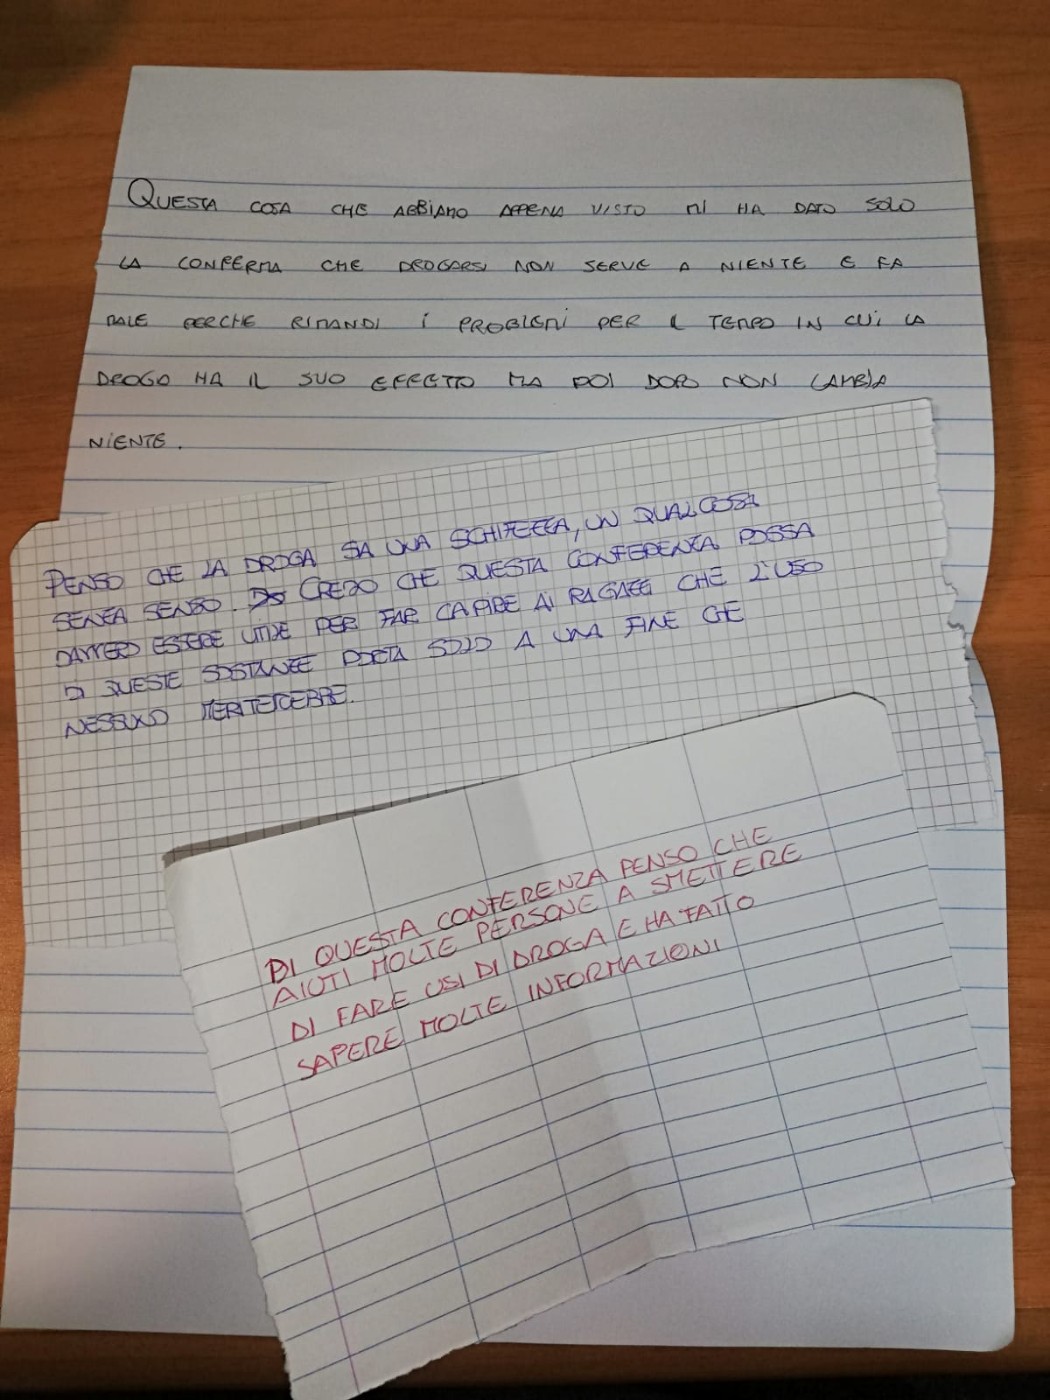 QUESTA COSA CHE ABBIAMO APPENA VISTO MI HA DATO SOLO
LA CONFERMA CHE DROGARSI NON SERVE A NIENTE E FA
MALE PERCHE RIMANDI I PROBLEMI PER IL TEMPO IN CUI LA
DROGA HA IL SUO EFFETTO MA POI DOPO NON CAMBIA
NIENTE.
PENSO CHE LA DROGA SIA UNA SCHIFEZZA, UN QUALCOSA
SENZA SENSO. CREDO CHE QUESTA CONFERENZA POSSA
DAVVERO ESSERE UTILE PER FAR CAPIRE AI RAGAZZI CHE L'USO
DI QUESTE SOSTANZE PORTA SOLO A UNA FINE CHE
NESSUNO MERITEREBBE.
DI QUESTA CONFERENZA PENSO CHE
AIUTI MOLTE PERSONE A SMETTERE
DI FARE USI DI DROGA E HA FATTO
SAPERE MOLTE INFORMAZIONI